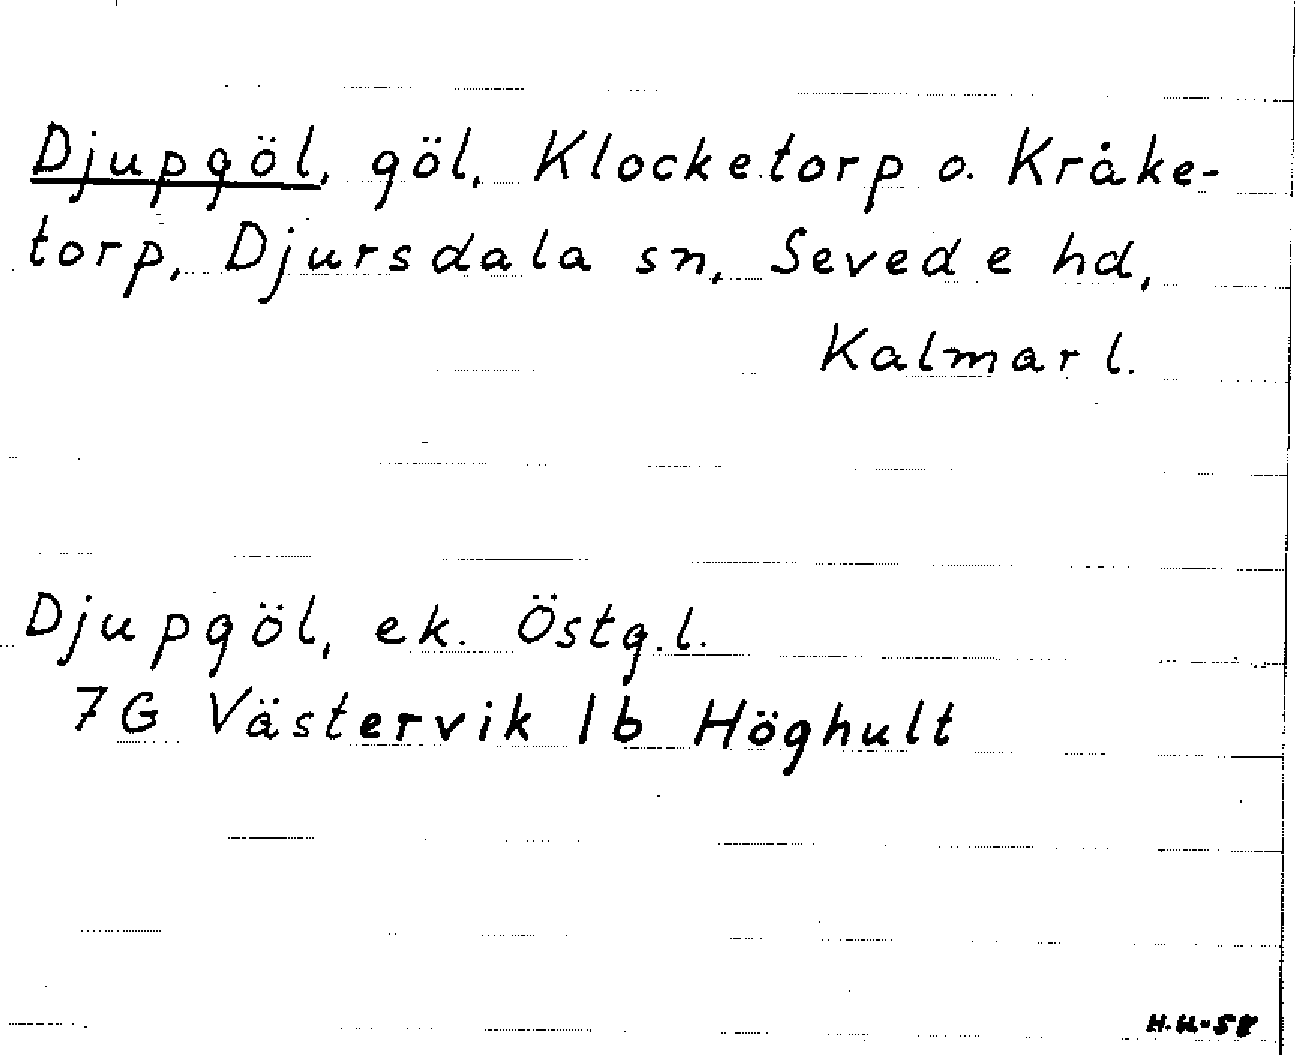 Djupgöl, göl, Klocketorp o. Kråke-
torp, Djursdala sn, Sevede hd,
Kalmar l.
Djupgöl, ek. Östg.l.
7G Västervik 1b Höghult